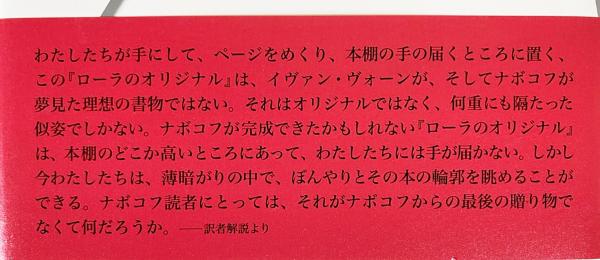 わたしたちが手にして、ページをめくり、本棚の手の届くところに置く、
この『ローラのオリジナル』は、イヴァン・ヴォーンが、そしてナボコフが
夢見た理想の書物ではない。それはオリジナルではなく、何重にも隔たった
似姿でしかない。ナボコフが完成できたかもしれない『ローラのオリジナル』
は、本棚のどこか高いところにあって、わたしたちには手が届かない。しかし
今わたしたちは、薄暗がりの中で、ぼんやりとその本の輪郭を眺めることが
できる。ナボコフ読者にとっては、それがナボコフからの最後の贈り物で
なくて何だろうか。——訳者解説より